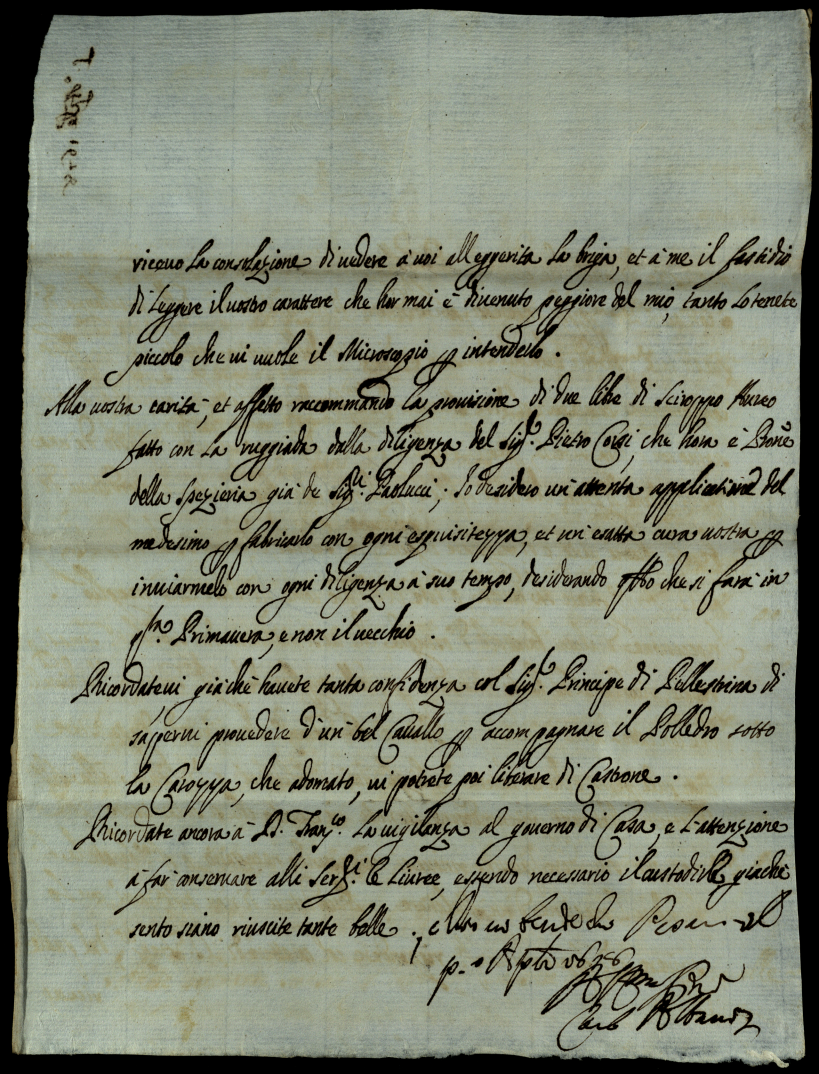 riceuo la consolazione di uedere à uoi alleggerita la briga, et à me il fastidio
di leggere il uostro carattere che hor mai è diuenuto peggiore del mio, tanto lo tenete
piccolo che ui uuole il Microscopio p intenderlo.
Alla uostra carità, et affetto raccommando la prouisione di due libre di Sciroppo Aureo
fatto con la ruggiada dalla diligenza del Sig.r Pietro Corsi, che hora è Prone
della Spezieria già de Sig.ri Paolucci; Io desidero un' attenta applicatione del
medesimo p fabricarlo con ogni esquisitezza, et un' esatta cura uostra p
inuiarmelo con ogni diligenza à suo tempo, desiderando che si farà in
Primauera, e non il uecchio.
Ricordateui già che hauete tanta confidenza col Sig.r Principe di Pellestrina di
saperui prouedere d'un bel Cauallo p accompagnare il Polledro sotto
la Carozza, che adomato, ui potrete poi liberare di Castrone.
Ricordate ancora à D. Franco. la uigilanza al gouerno di Casa, e l'attenzione
à far conseruare alli Seru.ri le liuree, essendo necessario il custodirle, già che
sento siano riuscite tante belle.
p.o
Carlo Albani